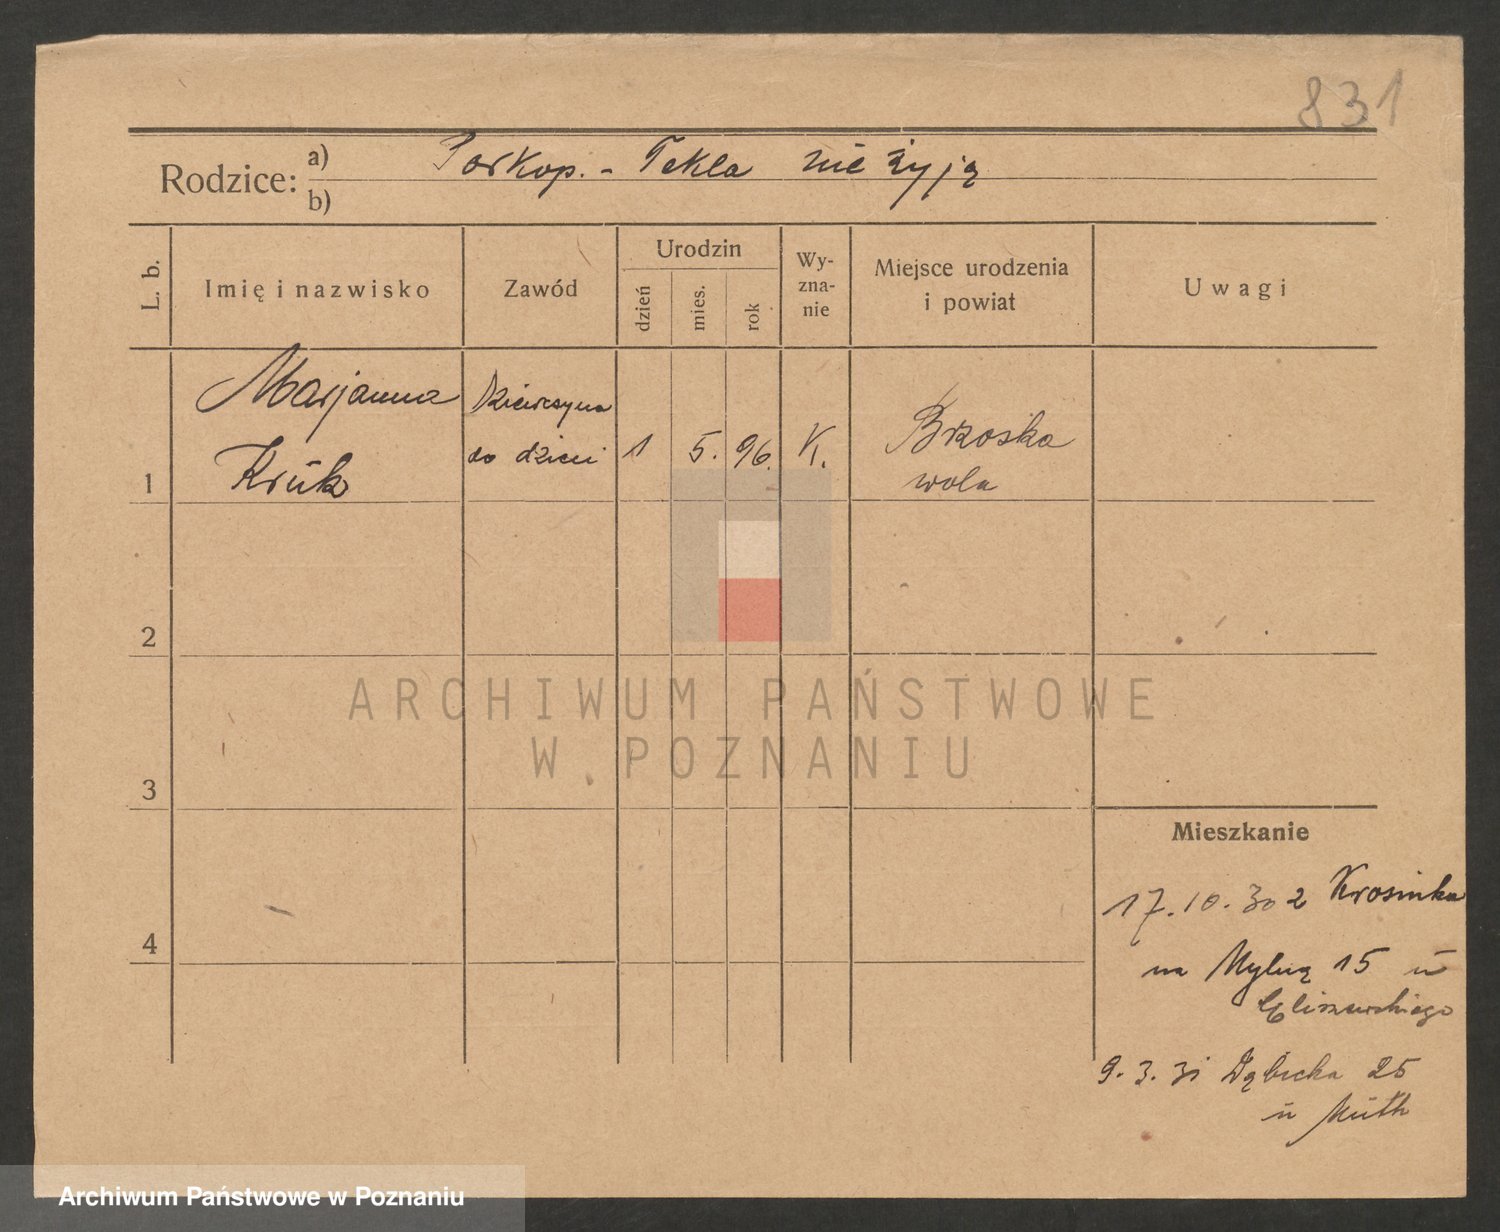 831
Rodzice: a) Porkop. - Tekla nie żyją
b)
L. b.
Imię i nazwisko
Zawód
Urodzin
dzień
mies.
rok
Wy-
zna-
nie
Miejsce urodzenia
i powiat
Uwagi
Marjanna
Krūk
Dziewczyna
do dzieci
1
1
5.
96.
K.
Brzoska
wola
2
3
4
ARCHIWUM PAŃSTWOWE
W POZNANIU
Mieszkanie
17.10.30 z Krosinka
na Mylną 15 ū
9.3.31 Dąbrcka 25
ū Mūth
Archiwum Państwowe w Poznaniu